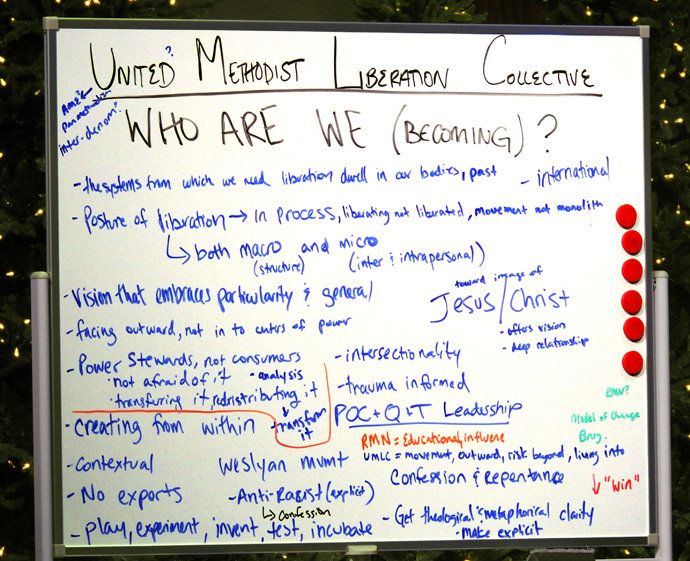 ?
UNITED METHODIST LIBERATION COLLECTIVE
AME?
Pan methodism
inter-denom?
WHO ARE WE (BECOMING)?
- the systems from which we need liberation dwell in our bodies, past
- international
- Posture of liberation → in process, liberating not liberated, movement not monolith
↳ both macro and micro
(structure) (inter & intrapersonal)
- Vision that embraces particularity & general
toward image of
Jesus/Christ
- offers vision
- deep relationship
- facing outward, not in to centers of power
- Power Stewards, not consumers
• not afraid of it • analysis
• transfering it, redistributing it
↓
transform it
- intersectionality
- trauma informed
POC + Q + T Leadership
RMN?
Model of Change
RMN = Educational, influence
UMLC = movement, outward, risk beyond, living into
Confession & Repentance
↓ "Win"
- Creating from within
- Contextual
Weslyan mvmt
- No exports
- Anti-Racist (explicit)
↳ Confession
- play, experiment, invent, test, incubate
- Get theological & metaphorical clarity
- make explicit